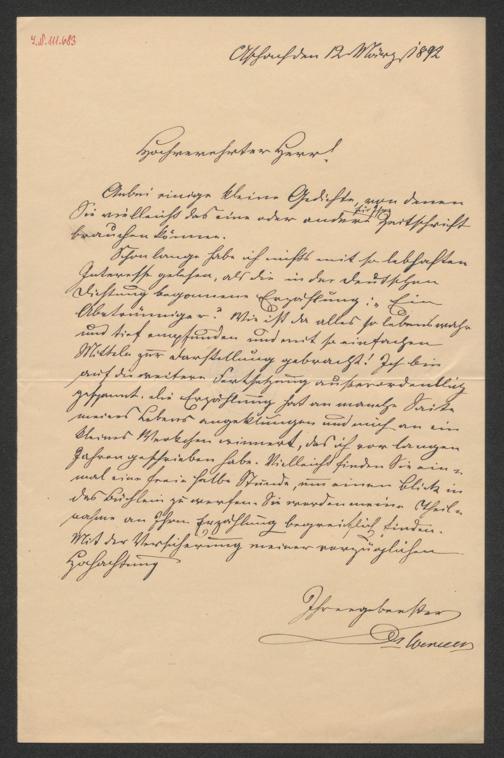 I.N. 111.683
Aschach den 12 März 1892
Hochverehrter Herr!
Anbei einige kleine Gedichte, von denen
für Ihre
Sie vielleicht das eine oder andere Zeitschrift
brauchen können.
Schon lange habe ich nichts mit so lebhaften
Interesse gelesen, als die in der Deutschen
Dichtung begonnene Erzählung: Ein
Abtrünniger? Wie ist da alles so lebenswahr
und tief empfunden und mit so einfachen
Mitteln zur Darstellung gebracht! Ich bin
auf die weitere Fortsetzung außerordentlich
gespannt. die Erzählung hat an manche Saite
meines Lebens angeklungen und mich an ein
kleines Werkchen erinnert, das ich vor langen
Jahren geschrieben habe. Vielleicht finden Sie ein-
mal eine freie halbe Stunde, um einen Blick in
das Büchlein zu werfen. Sie werden meine Theil-
nahme an Ihrer Erzählung begreiflich finden.
Mit der Versicherung meiner vorzüglichen
Hochachtung
Ihr ergebenster
Dr